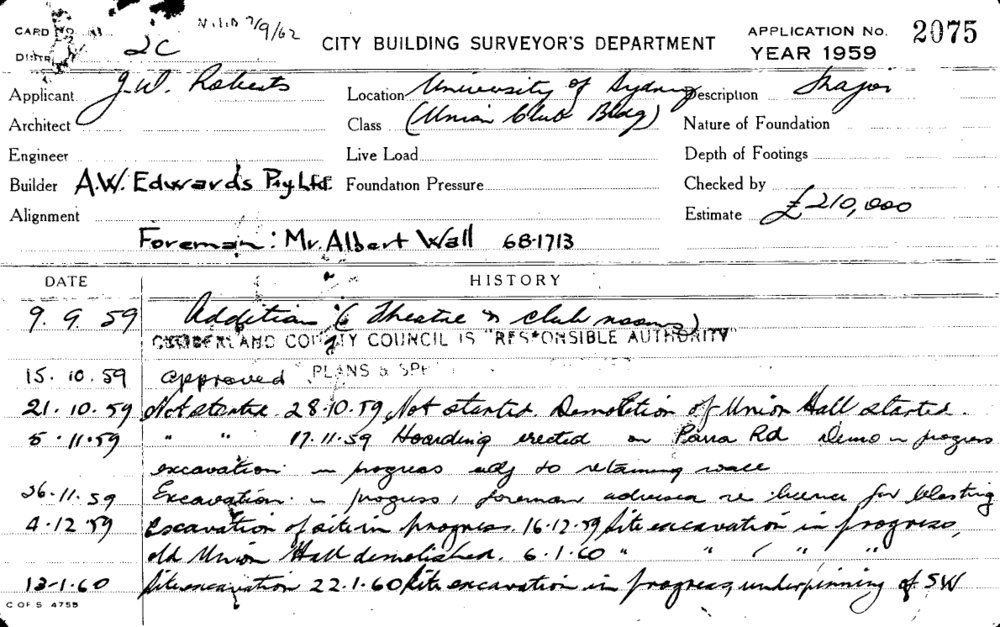 CARD NO.
DISTR 2C
7/9/62
CITY BUILDING SURVEYOR'S DEPARTMENT
APPLICATION No. 2075
YEAR 1959
Applicant J.W. Roberts Location University of Sydney Description Major
Architect Class (Union Club Bldg) Nature of Foundation
Engineer Live Load Depth of Footings
Builder A.W. Edwards Pty Ltd. Foundation Pressure Checked by
Alignment Estimate £210,000
Foreman: Mr. Albert Wall 68-1713
DATE HISTORY
9.9.59 Addition (Theatre & club rooms)
CUMBERLAND COUNTY COUNCIL IS "RESPONSIBLE AUTHORITY"
15.10.59 approved PLANS & SPE
21.10.59 Not started. 28.10.59 Not started. Demolition of Union Hall started.
5.11.59 " " 17.11.59 Hoarding erected on Parra Rd Demo in progress
excavation in progress adj to retaining wall
26.11.59 Excavation in progress, foreman advised re licence for blasting
4.12.59 Excavation of site in progress. 16.12.59 Site excavation in progress,
old Union Hall demolished. 6.1.60 " " " "
13-1.60 Site excavation 22.1.60 Site excavation in progress, underpinning of SW
C OF S 475B